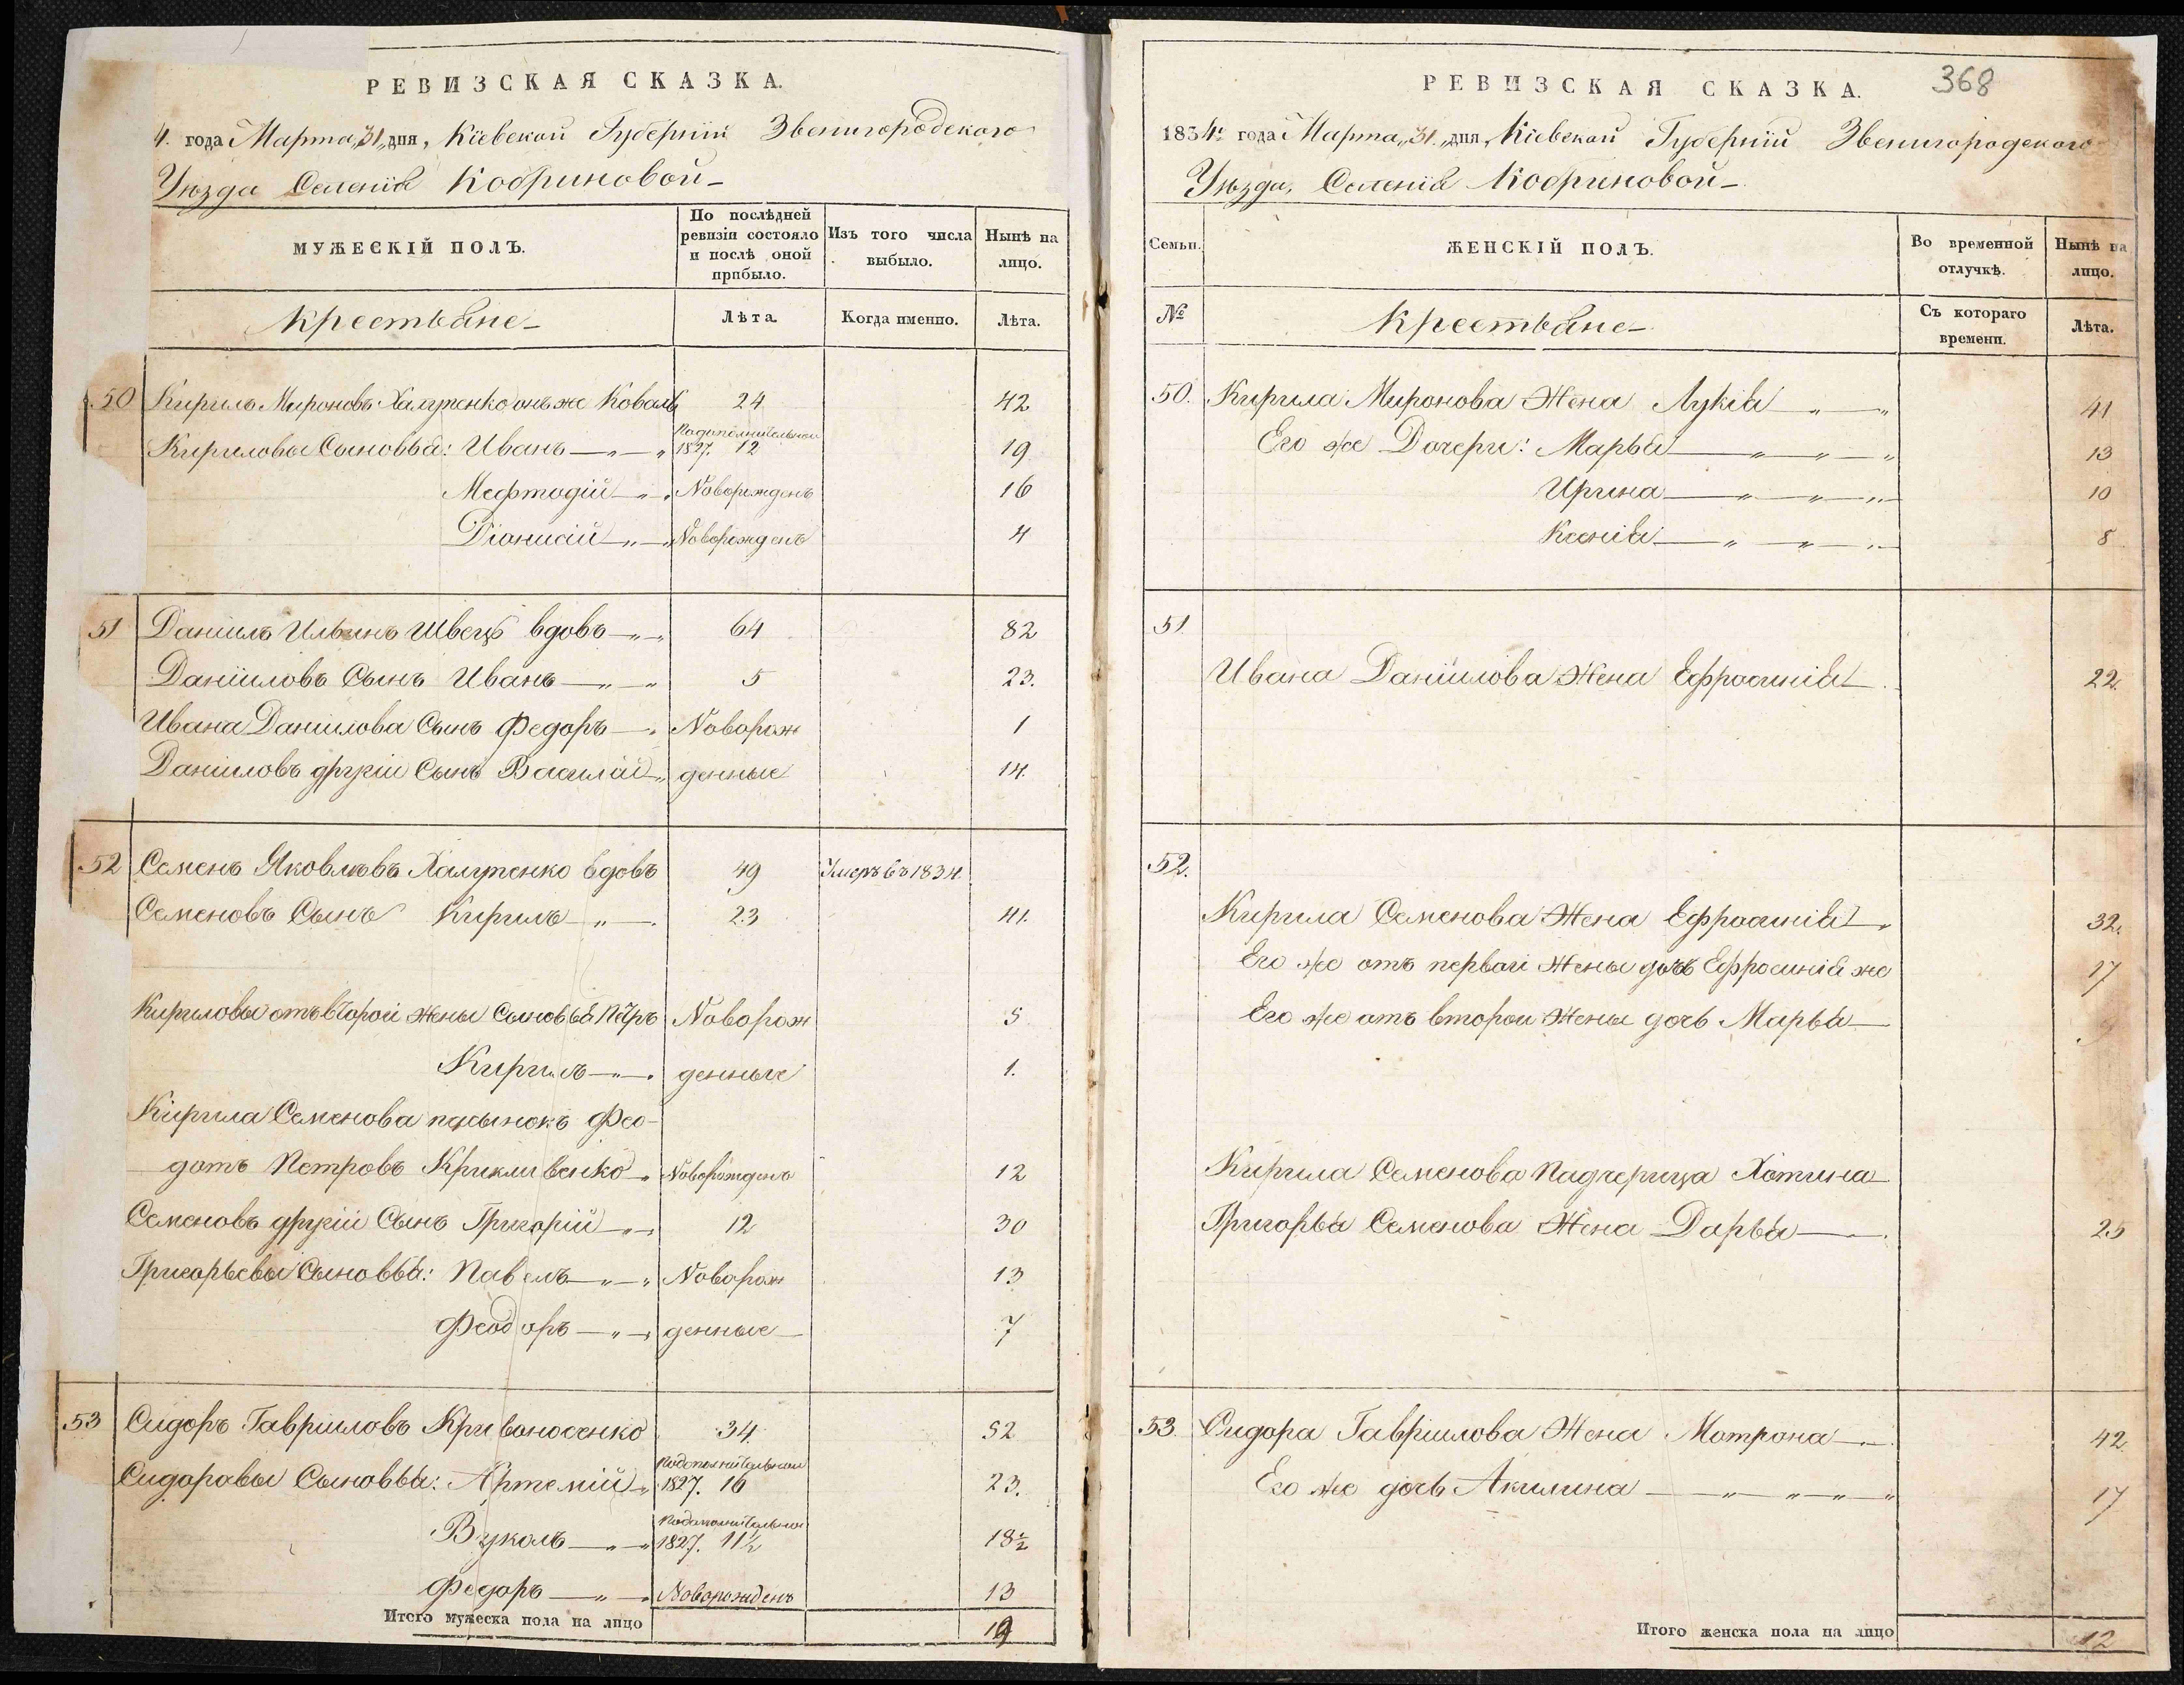 РЕВИЗСКАЯ СКАЗКА.
4. года Марта „31„ дня, Кіевской Губерніи Звенигородского
Уѣзда Селенія Кобриновой
МУЖЕСКІЙ ПОЛЪ.
По послѣдней ревизіи состояло и послѣ оной прибыло.
Изъ того числа выбыло.
Нынѣ на лицо.
Крестьяне
Лѣта.
Когда именно.
Лѣта.
50 Кирилъ Мироновъ Халупенко онъ же Коваль 24 42
Кириловы Сыновья: Иванъ По дополнительной 1827. 12 19
Мефтодій Новорожденъ 16
Діонисій Новорожденъ 4
51 Даніилъ Ильинъ Швецъ вдовъ 64 82
Даніиловъ Сынъ Иванъ 5 23.
Ивана Даніилова Сынъ Федоръ Новорож 1
Даніиловъ другій Сынъ Василій денные 14.
52 Семенъ Яковлѣвъ Халупенко вдовъ 49 Умеръ въ 1834.
Семеновъ Сынъ Кирилъ 23 41.
Кириловы отъ второй жены Сыновья Петръ Новорож 5
Кирилъ денные 1.
Кирила Семенова пасынокъ Фео-
дотъ Петровъ Крикливенко Новорожденъ 12
Семеновъ другій Сынъ Григорій 12 30
Григорьевы Сыновья: Павелъ Новорож 13
Феодоръ денные 7
53 Сидоръ Гавріиловъ Кривоносенко 34. 52
Сидоровы Сыновья: Артемій По дополнительной 1827. 16 23.
Вуколъ По дополнительной 1827. 11½ 18½
Федоръ Новорожденъ 13
Итого мужеска пола на лицо 19
РЕВИЗСКАЯ СКАЗКА.
368
1834. года Марта „31. „ дня, Кіевской Губерніи Звенигородского
Уѣзда, Селенія Кобриновой
Семьи.
ЖЕНСКІЙ ПОЛЪ.
Во временной отлучкѣ.
Нынѣ на лицо.
№
Крестьяне
Съ котораго времени.
Лѣта.
50. Кирила Миронова Жена Лукія 41
Его же Дочери: Марья 13
Ирина 10
Ксенія 8
51
Ивана Даніилова Жена Ефросинія 22.
52.
Кирила Семенова Жена Ефросинія 32.
Его же отъ первой Жены дочь Ефросинія же 17
Его же отъ второй Жены дочь Марья
Кирила Семенова Падчерица Хотина
Григорья Семенова Жена Дарья 25
53. Сидора Гавріилова Жена Мотрона 42
Его же дочь Акилина 17
Итого женска пола на лицо 12